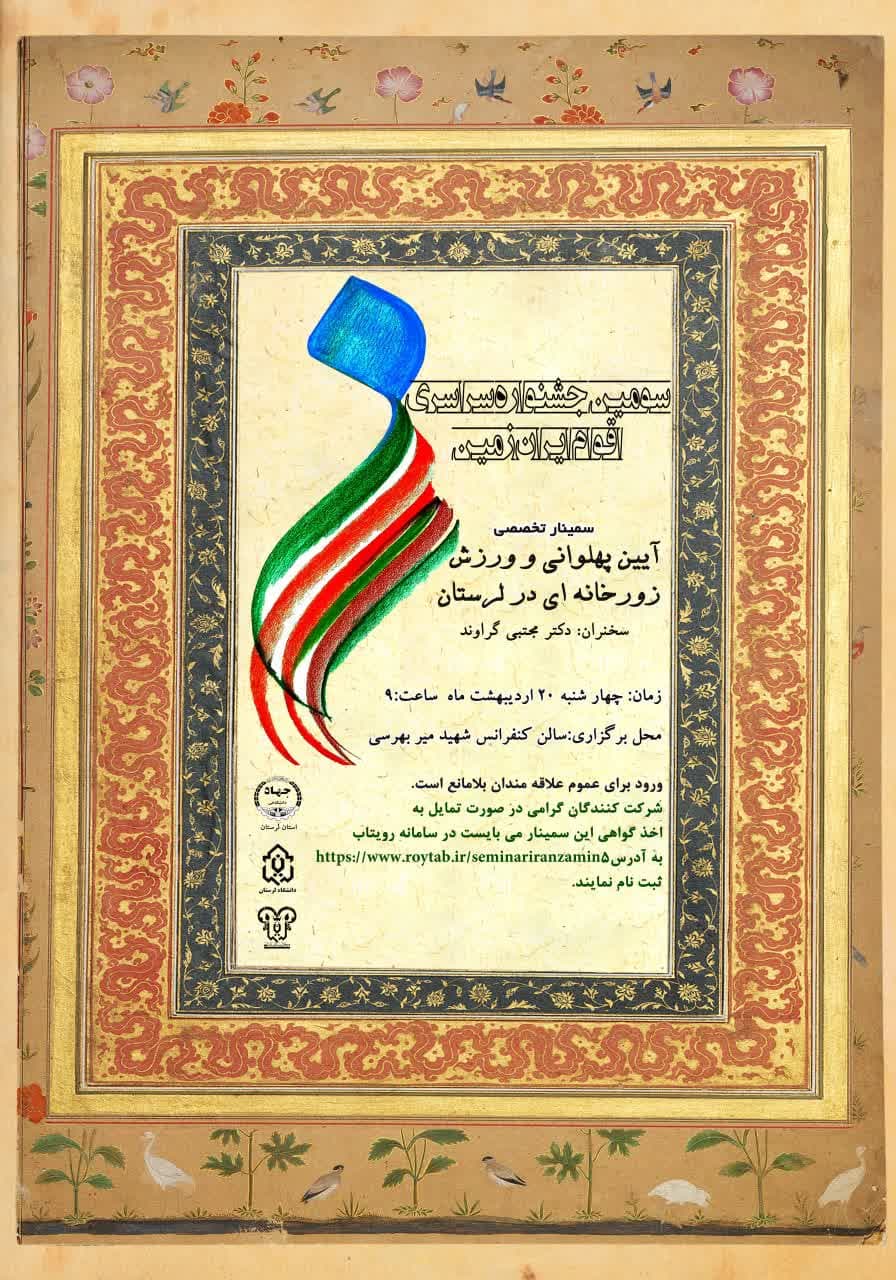 سومین جشنواره سراسری
اقوام ایران زمین
سمینار تخصصی
آیین پهلوانی و ورزش
زورخانه ای در لرستان
سخنران: دکتر مجتبی گراوند
زمان: چهار شنبه ۲۰ اردیبهشت ماه ساعت:۹
محل برگزاری:سالن کنفرانس شهید میر بهرسی
ورود برای عموم علاقه مندان بلامانع است.
شرکت کنندگان گرامی در صورت تمایل به
اخذ گواهی این سمینار می بایست در سامانه رویتاب
به آدرس https://www.roytab.ir/seminariranzamin۵
ثبت نام نمایند.
جهاد
دانشگاهی
استان لرستان
دانشگاه لرستان